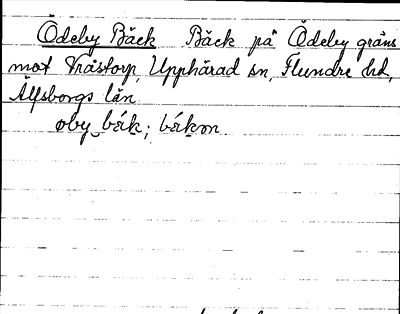 Ödeby Bäck Bäck på Ödeby gräns
mot Vrästorp, Upphärad sn, Flundre hd,
Älfsborgs län.
øby bék; békøn.